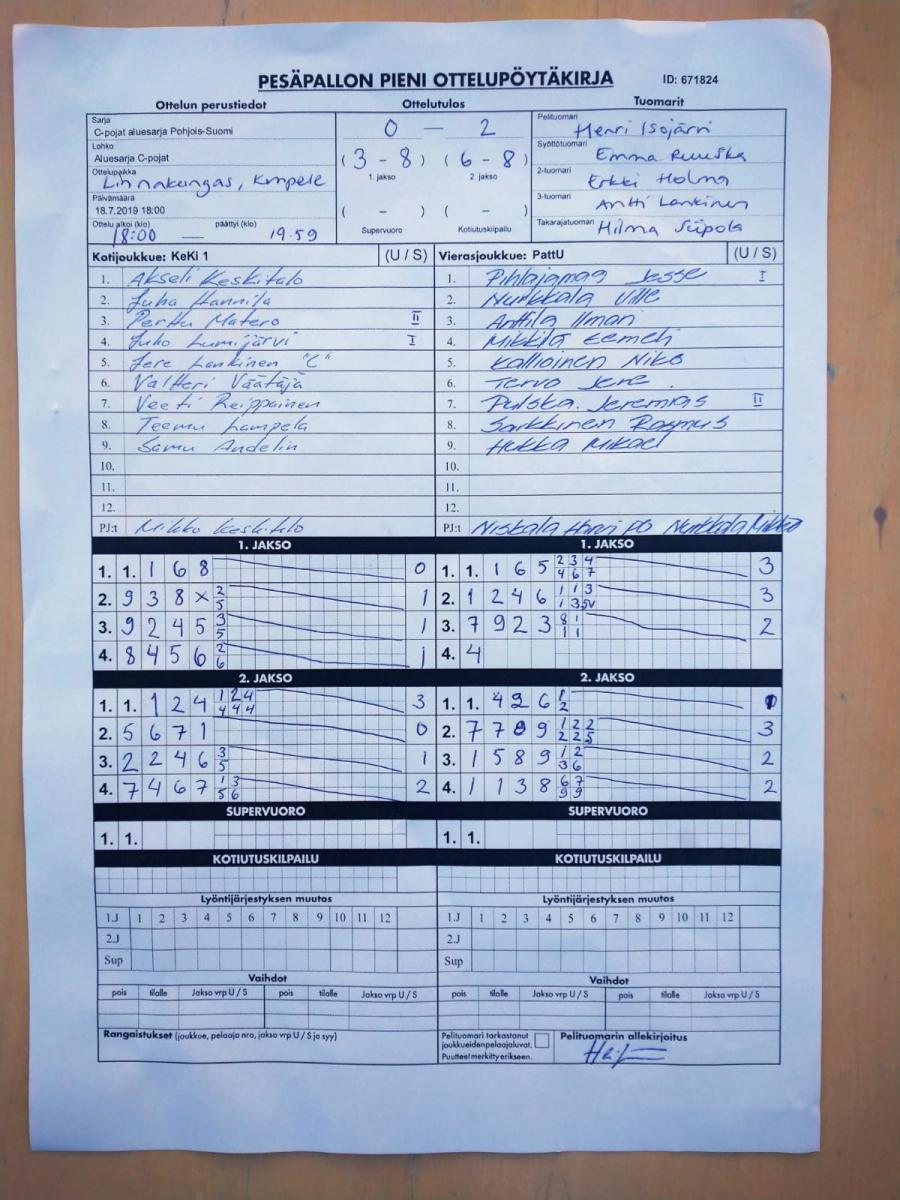 PESÄPALLON PIENI OTTELUPÖYTÄKIRJA ID: 671824
Ottelun perustiedot Ottelutulos Tuomarit
Sarja
C-pojat aluesarja Pohjois-Suomi
Lohko
Aluesarja C-pojat
Ottelupaikka
Linnakangas, Kempele
Päivämäärä
18.7.2019 18:00
Ottelu alkoi (klo) päättyi (klo)
18:00 — 19.59
0 — 2
( 3 - 8 ) ( 6 - 8 )
1. jakso 2. jakso
( - ) ( - )
Supervuoro Kotiutuskilpailu
Pelituomari Henri Isojärvi
Syöttötuomari Emma Ruuska
2-tuomari Erkki Holma
3-tuomari Antti Lankinen
Takarajatuomari Hilma Siipola
Kotijoukkue: KeKi 1 (U / S)
1. Akseli Keskitalo
2. Juha Hannila
3. Perttu Matero II
4. Juho Lumijärvi I
5. Jere Lankinen "C"
6. Valtteri Väätäjä
7. Veeti Reippainen
8. Teemu Lampela
9. Samu Andelin
10.
11.
12.
PJ:t Mikko Keskitalo
Vierasjoukkue: PattU (U / S)
1. Pihlajamaa Jesse I
2. Nurkkala Ville
3. Anttila Ilmari
4. Mikkilä Eemeli
5. Kallioinen Niko
6. Tervo Jere
7. Pulska Jeremias II
8. Sarkkinen Rasmus
9. Hukka Mikael
10.
11.
12.
PJ:t Niskala Nurkkala Mikko
1. JAKSO
1. 1. 1 6 8 0
2. 9 3 8 x 2 1
5
3. 9 2 4 5 3 1
5
4. 8 4 5 6 2 1
6
1. JAKSO
1. 1. 1 6 5 2 3 4 3
4 6 7
2. 1 2 4 6 1 1 3 3
1 3 5V
3. 7 9 2 3 8 1 2
1 1
4. 4
2. JAKSO
1. 1. 1 2 4 1 2 4 3
4 4 4
2. 5 6 7 1 0
3. 2 2 4 6 3 1
5
4. 7 4 6 7 1 3 2
5 6
2. JAKSO
1. 1. 4 2 6 1 1
2
2. 7 7 8 9 1 2 2 3
2 2 5
3. 1 5 8 9 1 2 2
3 6
4. 1 1 3 8 6 7 2
9 9
SUPERVUORO
1. 1.
SUPERVUORO
1. 1.
KOTIUTUSKILPAILU
KOTIUTUSKILPAILU
Lyöntijärjestyksen muutos
1.J 1 2 3 4 5 6 7 8 9 10 11 12
2.J
Sup
Lyöntijärjestyksen muutos
1.J 1 2 3 4 5 6 7 8 9 10 11 12
2.J
Sup
Vaihdot
pois tilalle Jakso vrp U / S pois tilalle Jakso vrp U / S
Vaihdot
pois tilalle Jakso vrp U / S pois tilalle Jakso vrp U / S
Rangaistukset (joukkue, pelaaja nro, jakso vrp U / S ja syy)
Pelituomari tarkastanut
joukkueiden pelaajaluvat.
Puutteet merkitty erikseen.
Pelituomarin allekirjoitus